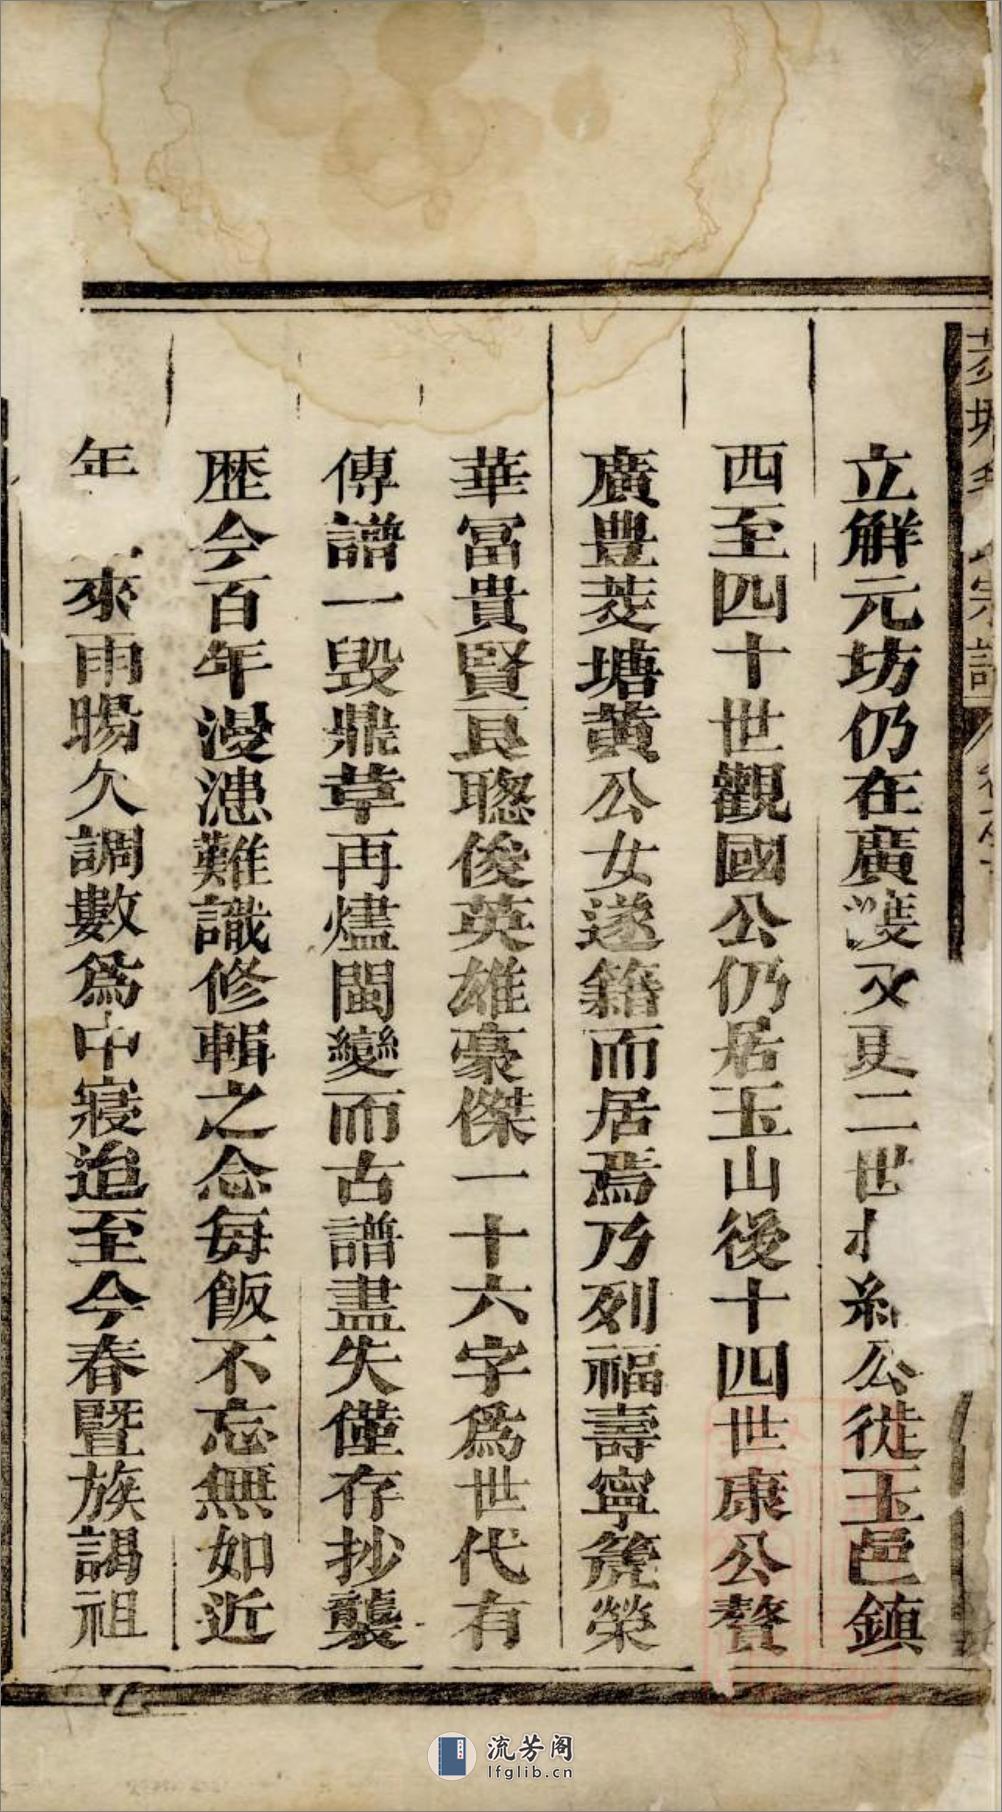 立解元坊仍在廣䕶又更二世 公徙玉邑鎮
西至四十世觀國公仍居玉山後十四世康公贅
廣豊菱塘黄公女遂籍而居焉乃列福壽寧 榮
華冨貴賢良聰俊英雄豪傑一十六字爲世代有
傳譜一毁鼎革再燼閩變而古譜盡失僅存抄襲
歴今百年漫漶難識修輯之念每飯不忘無如近
年 來雨暘欠調數爲中寢迨至今春曁族謁祖
流芳阁
lfglib.cn